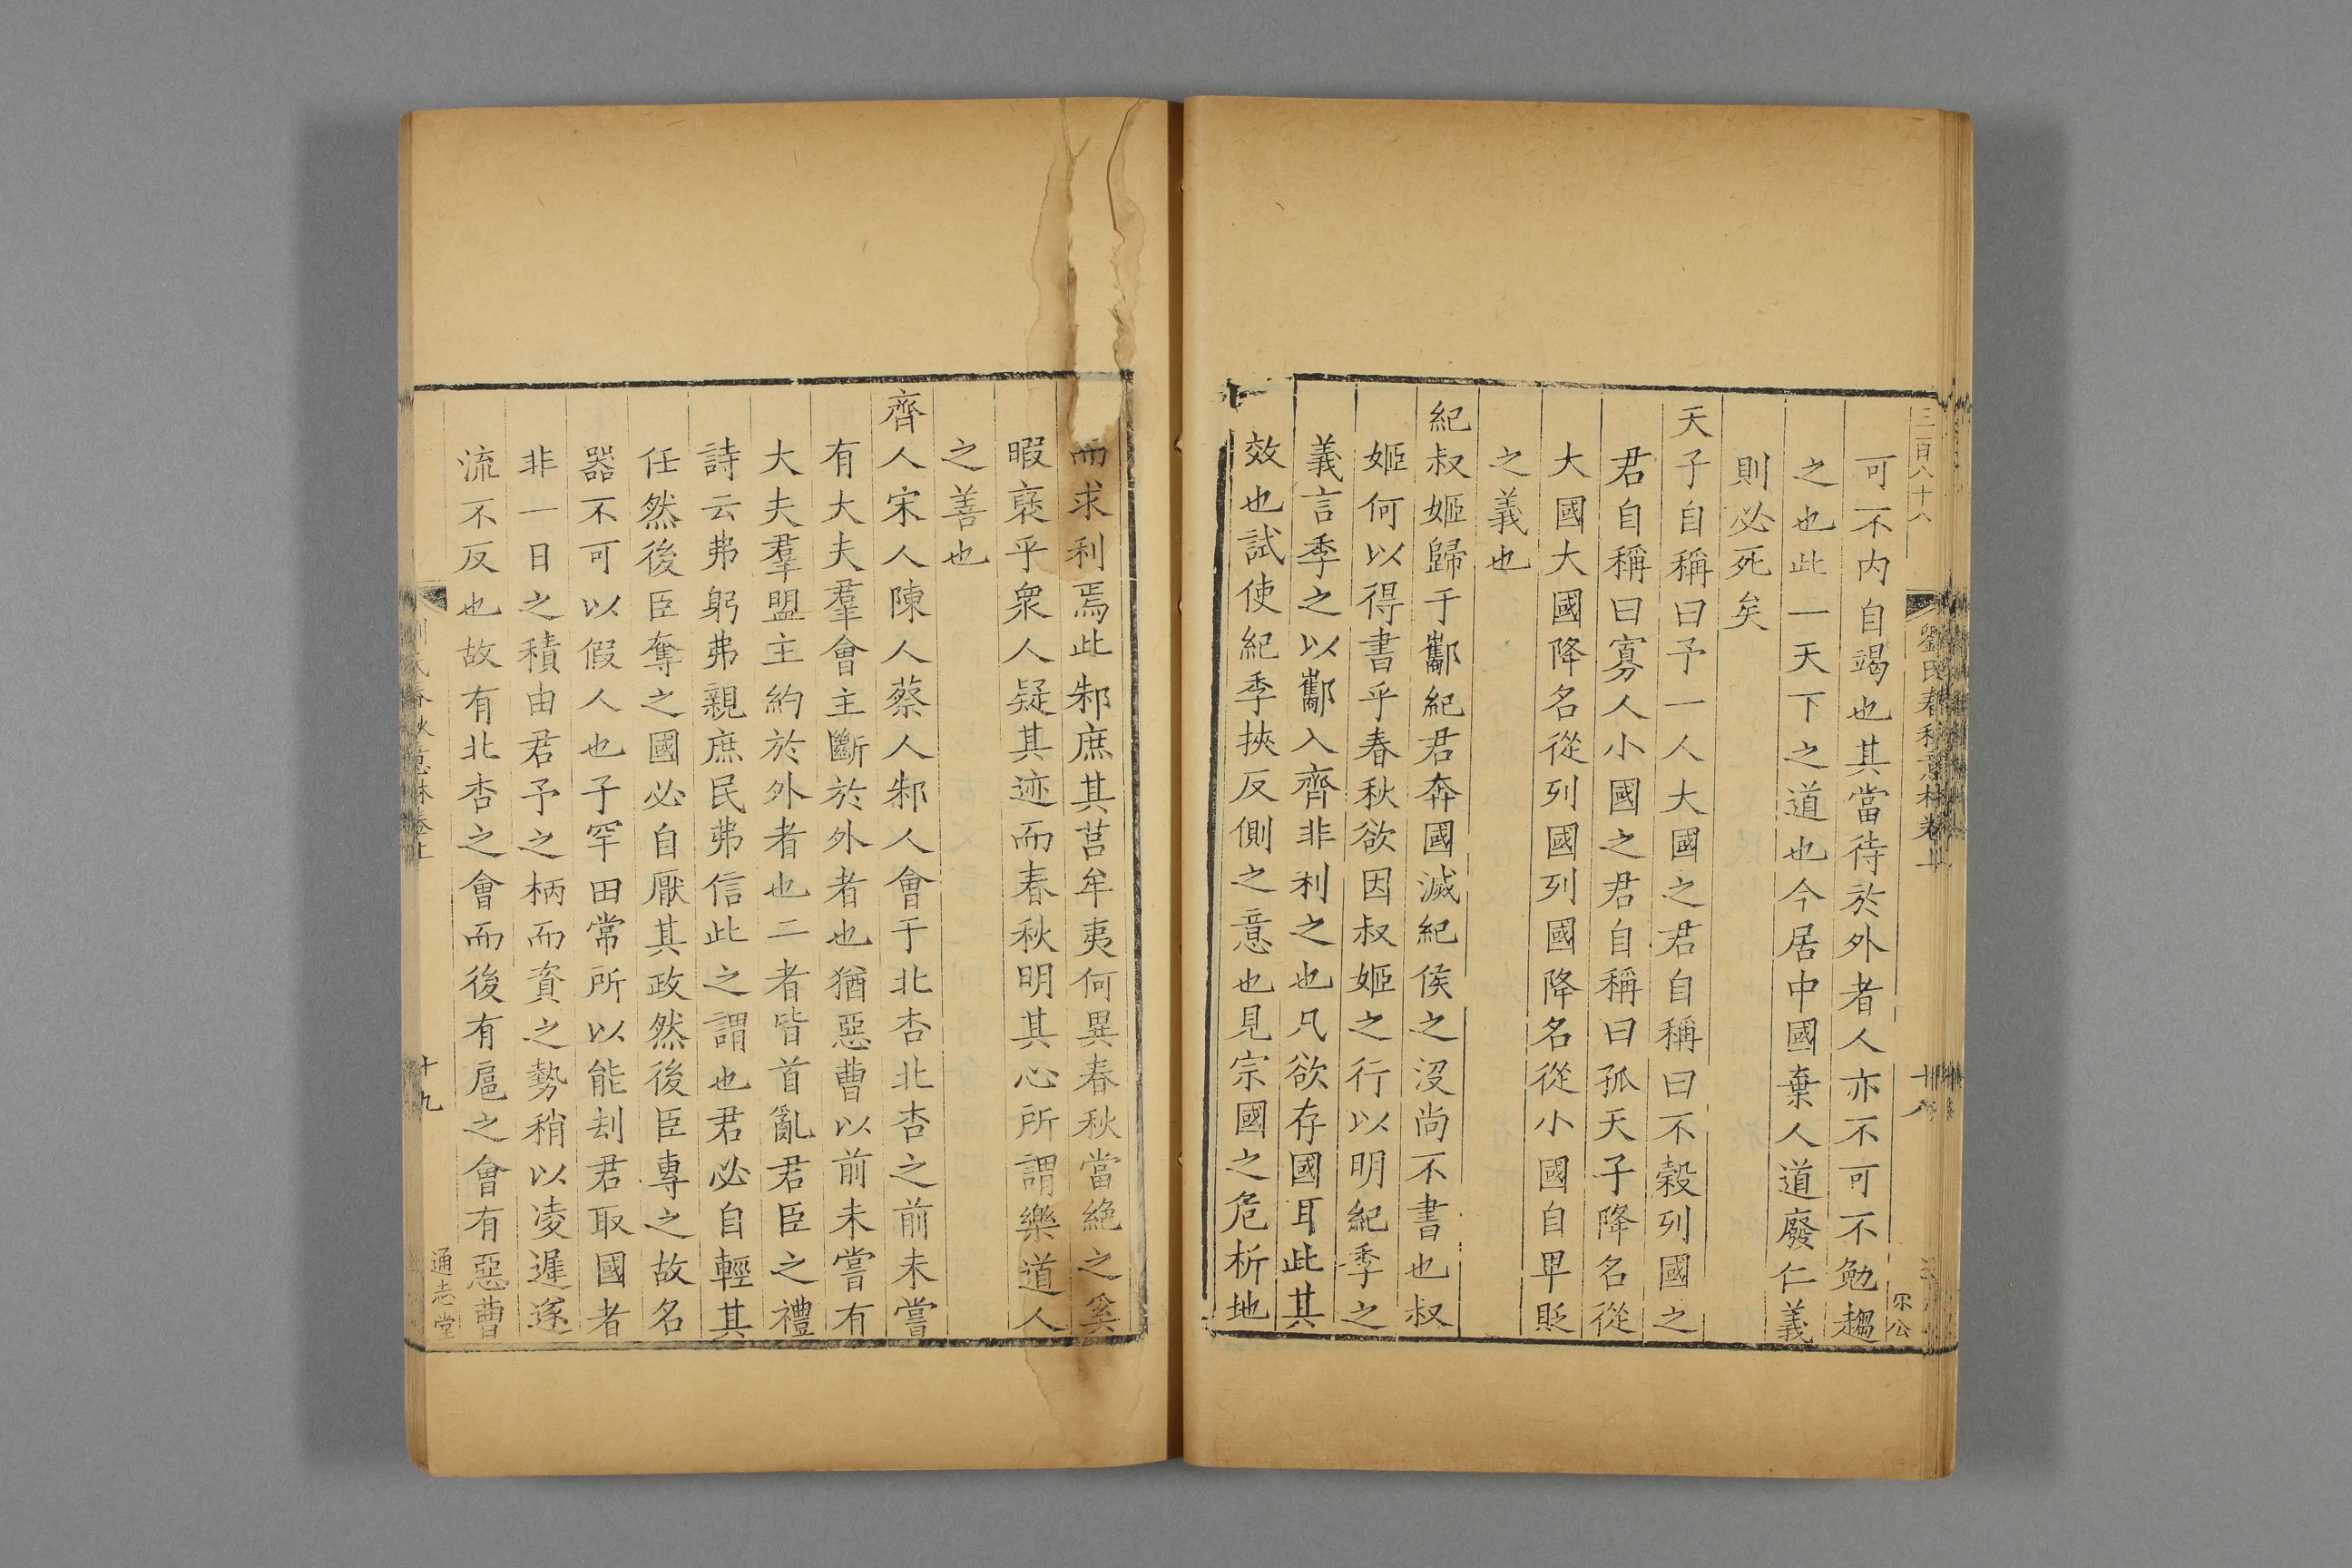 三百八十八
劉氏春秋意林卷上
十八
可不内自竭也其當待於外者人亦不可不勉趨
之也此一天下之道也今居中國棄人道廢仁義
則必死矣
天子自稱曰予一人大國之君自稱曰不榖列國之
君自稱曰寡人小國之君自稱曰孤天子降名從
大國大國降名從列國列國降名從小國自畢貶
之義也
紀叔姬歸于酅紀君奔國滅紀侯之沒尚不書也叔
姬何以得書乎春秋欲因叔姬之行以明紀季之
義言季之以酅入齊非利之也凡欲存國耳此其
效也試使紀季挾反側之意也見宗國之危析地
而求利焉此邾庶其莒牟夷何異春秋當絶之奚
暇襃乎衆人疑其迹而春秋明其心所謂樂道人
之善也
齊人宋人陳人蔡人邾人會于北杏北杏之前未嘗
有大夫羣會主斷於外者也猶惡曹以前未嘗有
大夫羣盟主約於外者也二者皆首亂君臣之禮
詩云弗躬弗親庶民弗信此之謂也君必自輕其
任然後臣奪之國必自厭其政然後臣專之故名
器不可以假人也子罕田常所以能刦君取國者
非一日之積由君予之柄而資之勢稍以凌遲遂
流不反也故有北杏之會而後有扈之會有惡曹
劉氏春秋意林卷上
十九
通志堂